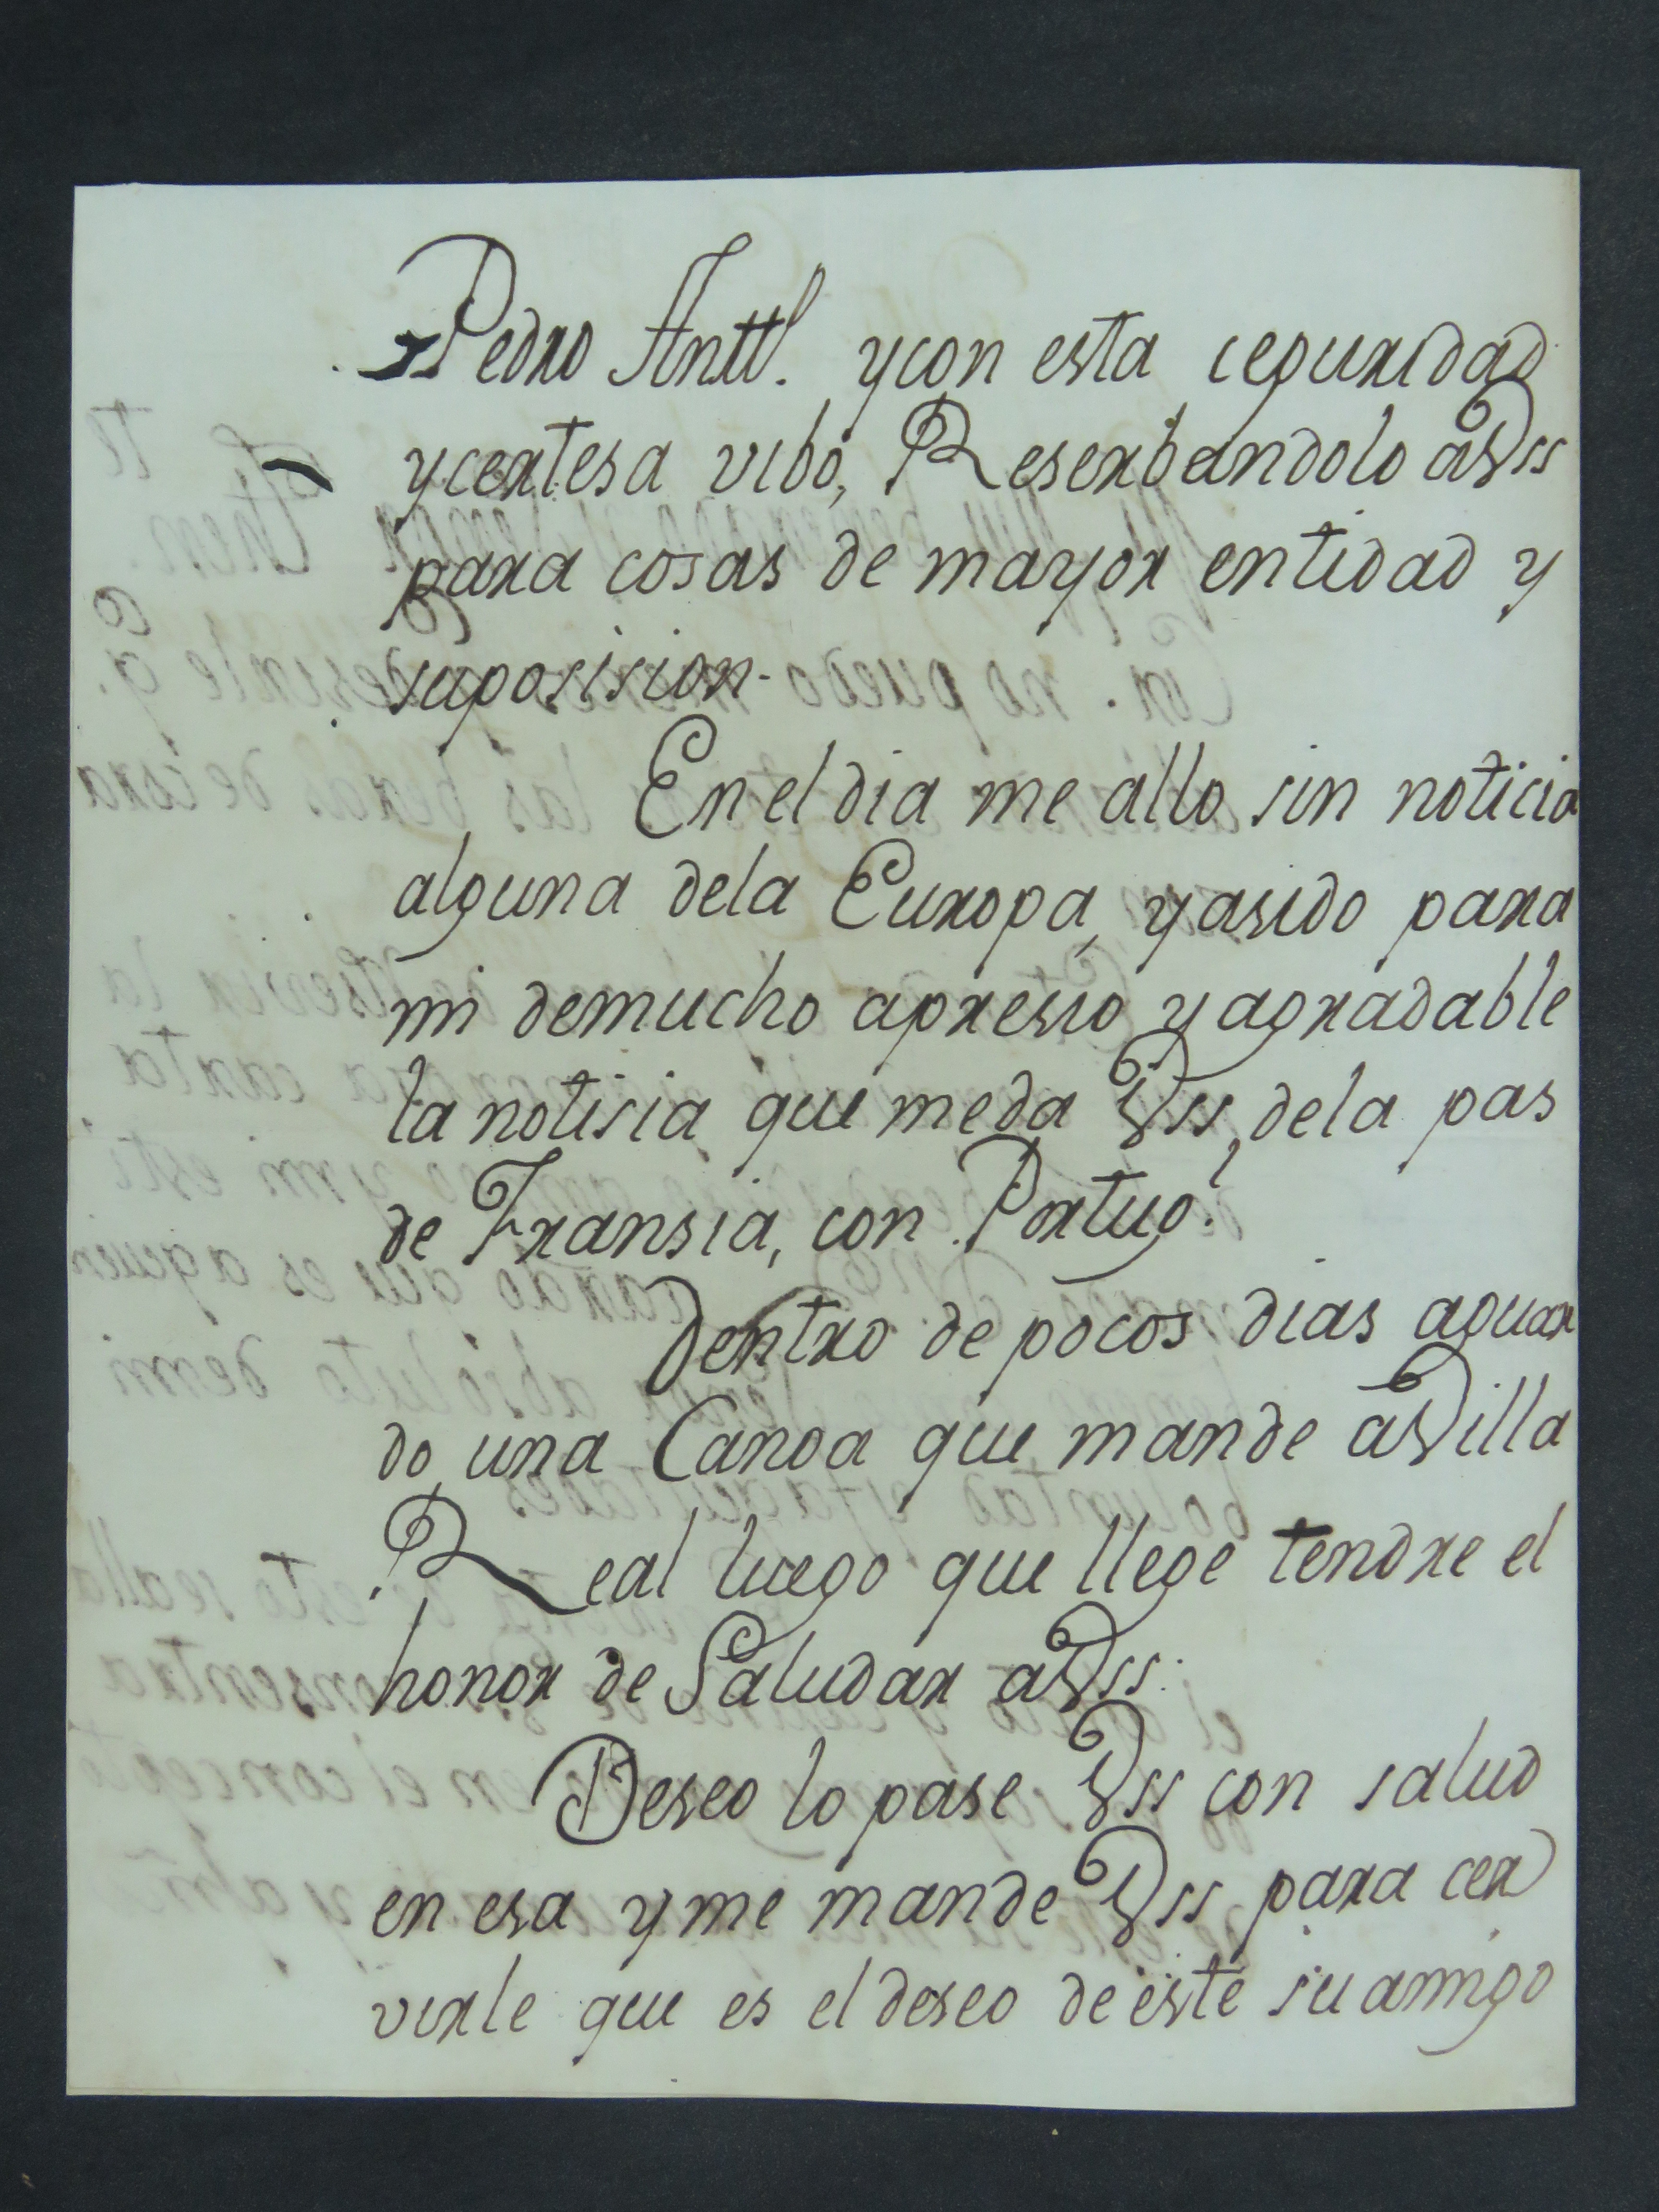 Pedro Antt.º y con esta ceguridad
y certesa vibo, Reserbandolo a Vss
para cosas de mayor entidad y
suposision.
En el dia me allo sin noticia
alguna dela Europa, y asido para
mi demucho apresio y agradable
la notisia que meda Vss, dela pas
de Fransia, con Portug.l
Dentro de pocos dias aguar
do, una Canoa que mande a Villa
Real luego que llege tendre el
honor de Saludar a Vss.
Deseo lo pase Vss con salud
en esa y me mande Vss para cer
virle que es el deseo de este su amigo